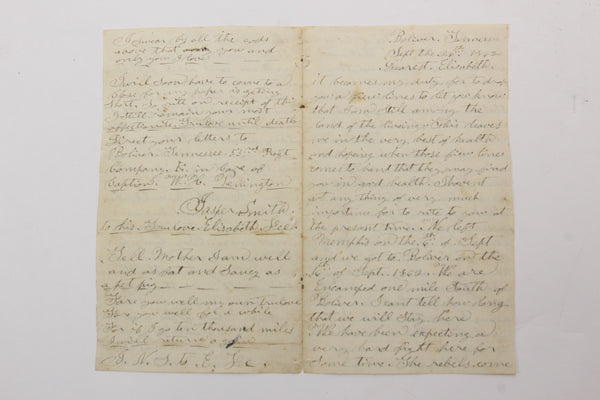 Boliver. Tennessee
Sept the 20th 1862
Dearest. Elisabeth.
it becomes my duty for to drop
you a fiew lines to let you know
that I am still among the
land of the living. This leaves
me in the very best of health
and hoping when those fiew lines
comes to hand that they may find
you in good health. I havent
got any thing of very much
importance for to rite to you at
the present time. We left
Memphis on the 6th of Sept
and we got to Boliver on the
of Sept. 1862. We are
Encamped one mile South of
Boliver. I cant tell how long
that we will Stay here
We have been expecting a
very hard fight here for
Some time. The rebels come
I swear by all the gods
above that you and
only you I love
I will soon have to come to a
close for my paper is getting
Short. So rite on receipt of this
I still remain your most
affectionate. Trulove until death
Direct your letters to
Boliver. Tennessee. 53rd Regt
Company. in Care of
Caption.
Jasper Smith.
to his. Trulove. Elisabeth. Lee
Tell. Mother I am well
and as fat and Saucy as
a pet pig
Fare you well my own trulove
Fare you well for a while
For if I go ten thousand miles
I will return a gain
J. N. S. to E. Lee.